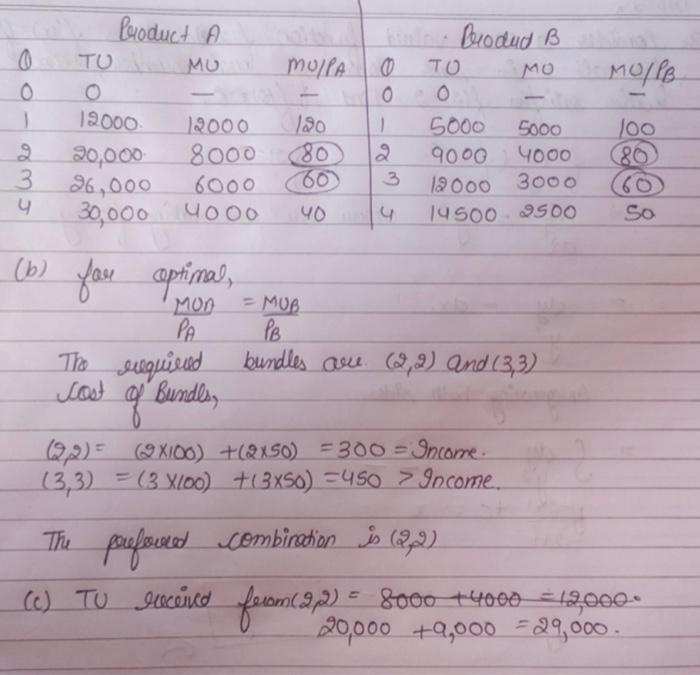 Product A Product B
Q TU MU MU/PA Q TU MU MU/PB
0 0 — — 0 0 — —
1 12000 12000 120 1 5000 5000 100
2 20,000 8000 80 2 9000 4000 80
3 26,000 6000 60 3 12000 3000 60
4 30,000 4000 40 4 14500 2500 50
(b) for optimal,
MUA = MUB
PA PB
The required bundles are (2,2) and (3,3)
Cost of Bundles,
(2,2) = (2×100) + (2×50) = 300 = Income.
(3,3) = (3×100) + (3×50) = 450 > Income.
The preferred combination is (2,2)
(c) TU received from (2,2) = 8000 + 4000 = 12,000.
20,000 + 9,000 = 29,000.